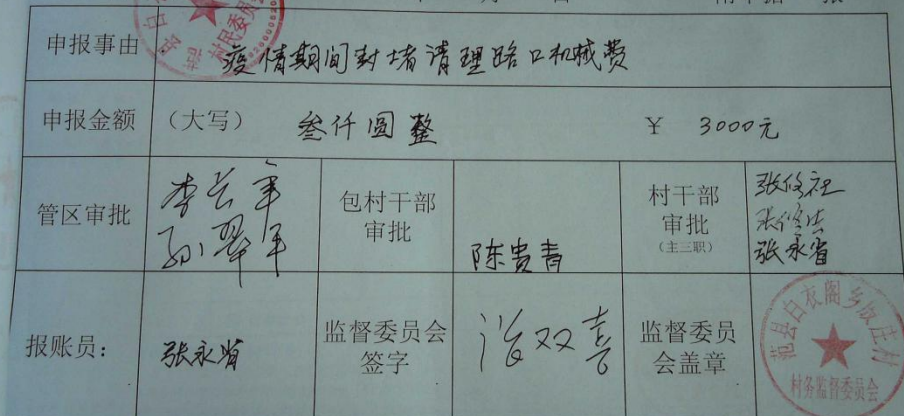 村民委员会
申报事由
疫情期间封堵清理路口机械费
申报金额
（大写） 叁仟圆整
￥ 3000元
管区审批
李长军
孙翠军
包村干部
审批
陈贵青
村干部
审批
（主三职）
张修社
张修法
张永省
报账员：
张永省
监督委员会
签字
双喜
监督委员
会盖章
范县白衣阁乡 庄村
村务监督委员会